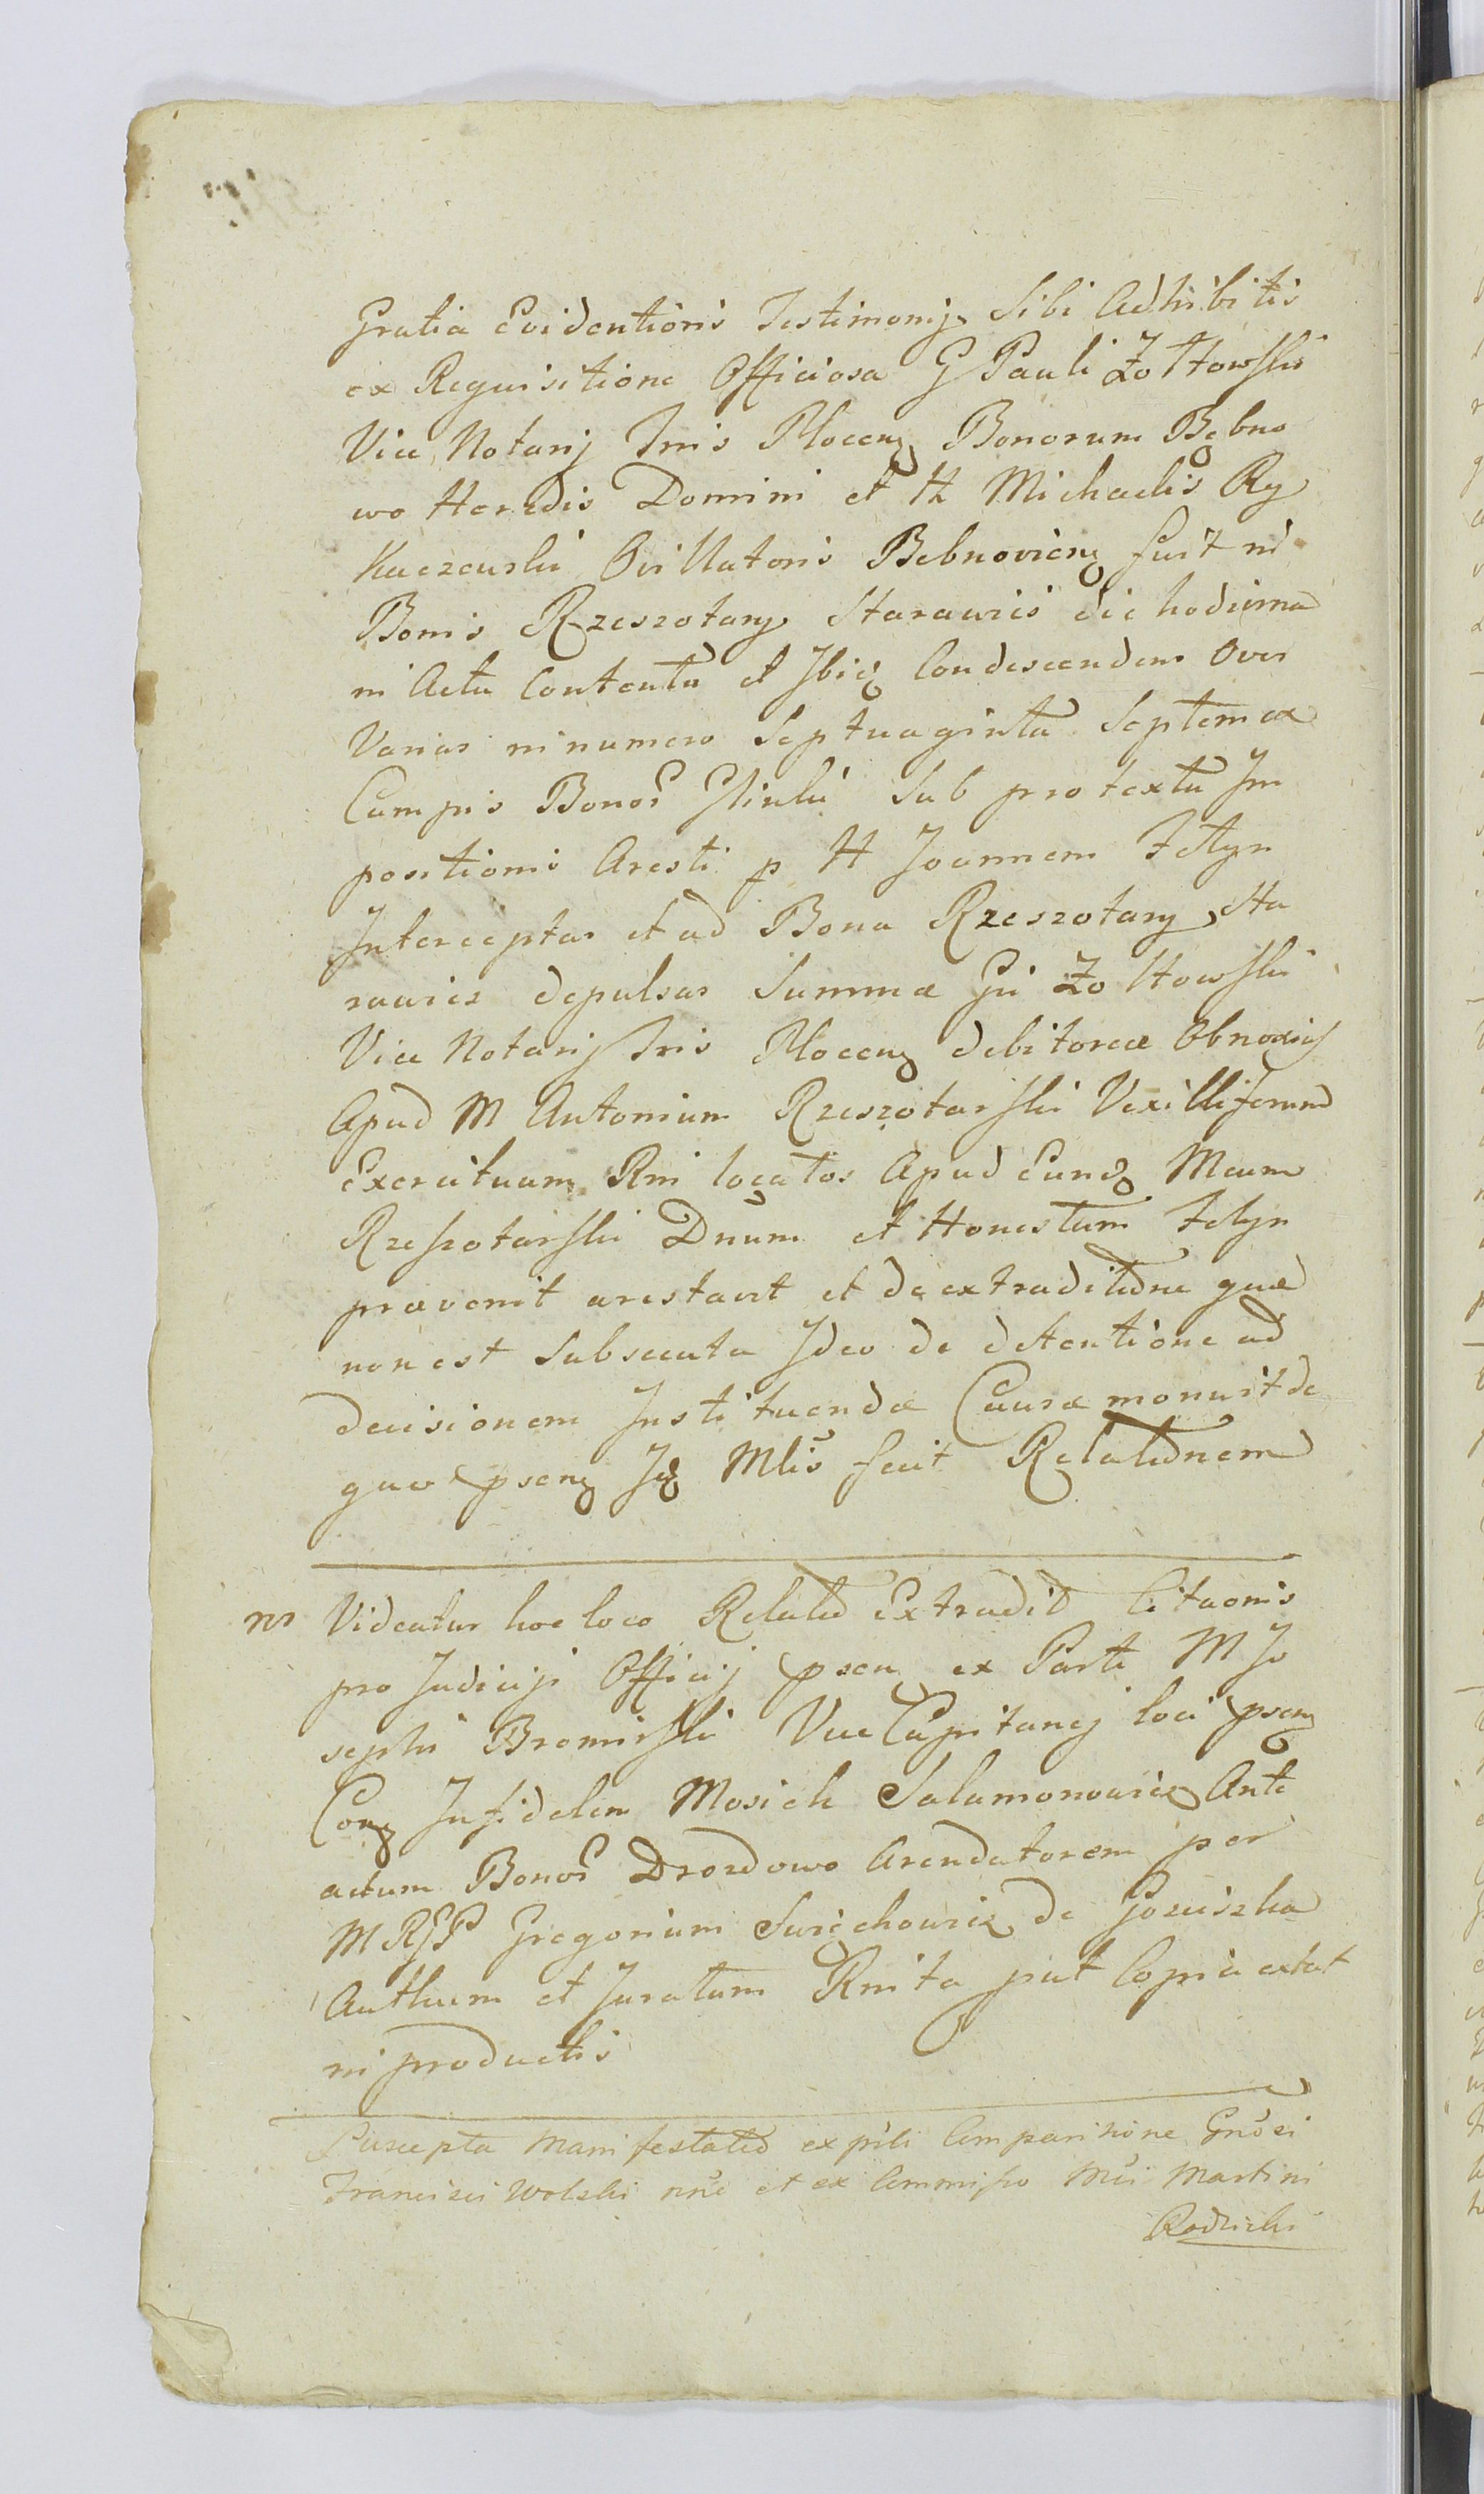 Gratia Evidentioris Testimonij Sibi Adhibitis
ex Requisitione Officiosa G Pauli Zołtowski
Vice Notarij Tris Plocen Bonorum Bębno
wo Heredis Domini et H Michaelis Ry
kaczewski Ovillatoris Bębnovien fuit in
Bonis Rzeszotary Starawieś die hodierna
in Actu Contentu et Ibiq Condescenden Oves
Varias in numero Septuaginta Septem ex
Campis Bonor Glinki Sub protextu Im
positionis Aresti p H Joannem Feltyn
Interceptas et ad Bona Rzeszotary Sta
rawies depulsas Summæ Gi Zołtowski
Vice Notarij Tris Plocen debitoreæ Obnoxias
Apud M Antonium Rzeszotarski Vexilliferum
Exercituum Rni locatos Apud Eund Mcum
Rzeszotarski Dnum et Honestum Feltyn
prævenit arestavit et de extraditione quæ
non est Subsecuta Ideo de detentione ad
decisionem Instituendæ Causæ monuit de
quo psens Id Mlis fecit Relationem
ns Videatur hoc loco Relatio Extradit Citaonis
pro Judicijs Officij psen ex Parte M Jo
sephi Bromirski Vice Capitanej loci psen
Con Infidelem Mosiek Salamonowicz Ante
actum Bonor Drozdowo Arendatorem per
M RGP Gregorium Swiechowicz de Gozuiszka
Authum et Juratum Rnita put Copia extat
in productis
Suscepta Manifestatio ex psli Comparitione Gnosi
Francisci Wolski nne et ex Commisso Mci Martini
Rodzicki